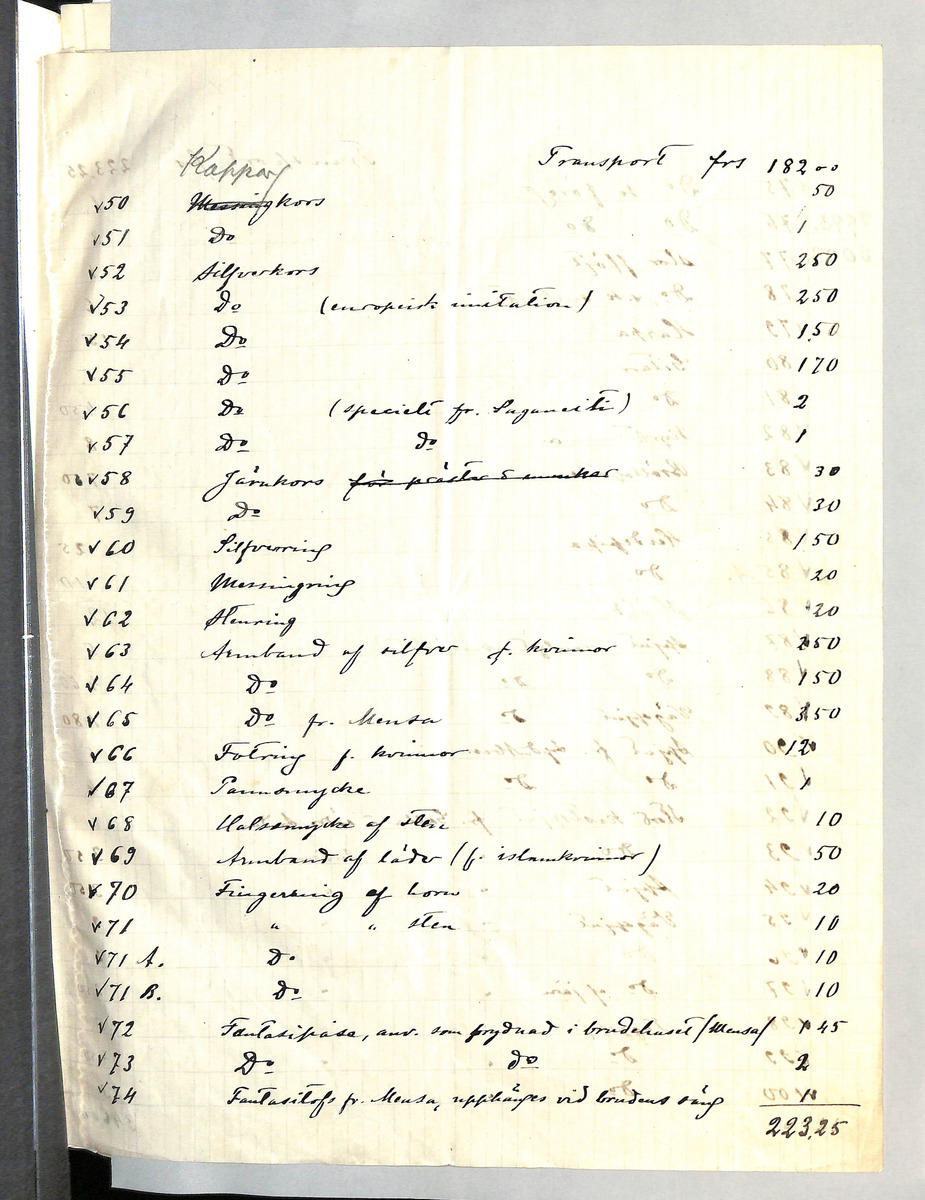 Transport frs 182 00
Koppar
v50 Messingkors 50
v51 Do 1
v52 Silfverkors 250
v53 Do (europeisk imitation) 250
v54 Do 1,50
v55 Do 170
v56 Do (specielt fr. Saganeiti) 2
v57 Do do 1
v58 Järnkors för präster & munkar 30
v59 Do 30
v60 Silfverring 150
v61 Messingring 20
v62 Stenring 20
v63 Armband af silfver f. kvinnor 250
v64 Do 150
v65 Do fr. Mensa 350
v66 Fotring f. kvinnor 12
v67 Pannsmycke 1
v68 Halssmycke af sten 10
v69 Armband af läder (f. islamkvinnor) 50
v70 Fingerring af horn 20
v71 " " sten 10
v71 A. Do 10
v71 B. Do 10
v72 Fantasipåsa, anv. som prydnad i brudehuset /Mensa/ 1 45
v73 Do do 2
v74 Fantasitofs fr. Mensa, upphänges vid brudens säng 1
223,25